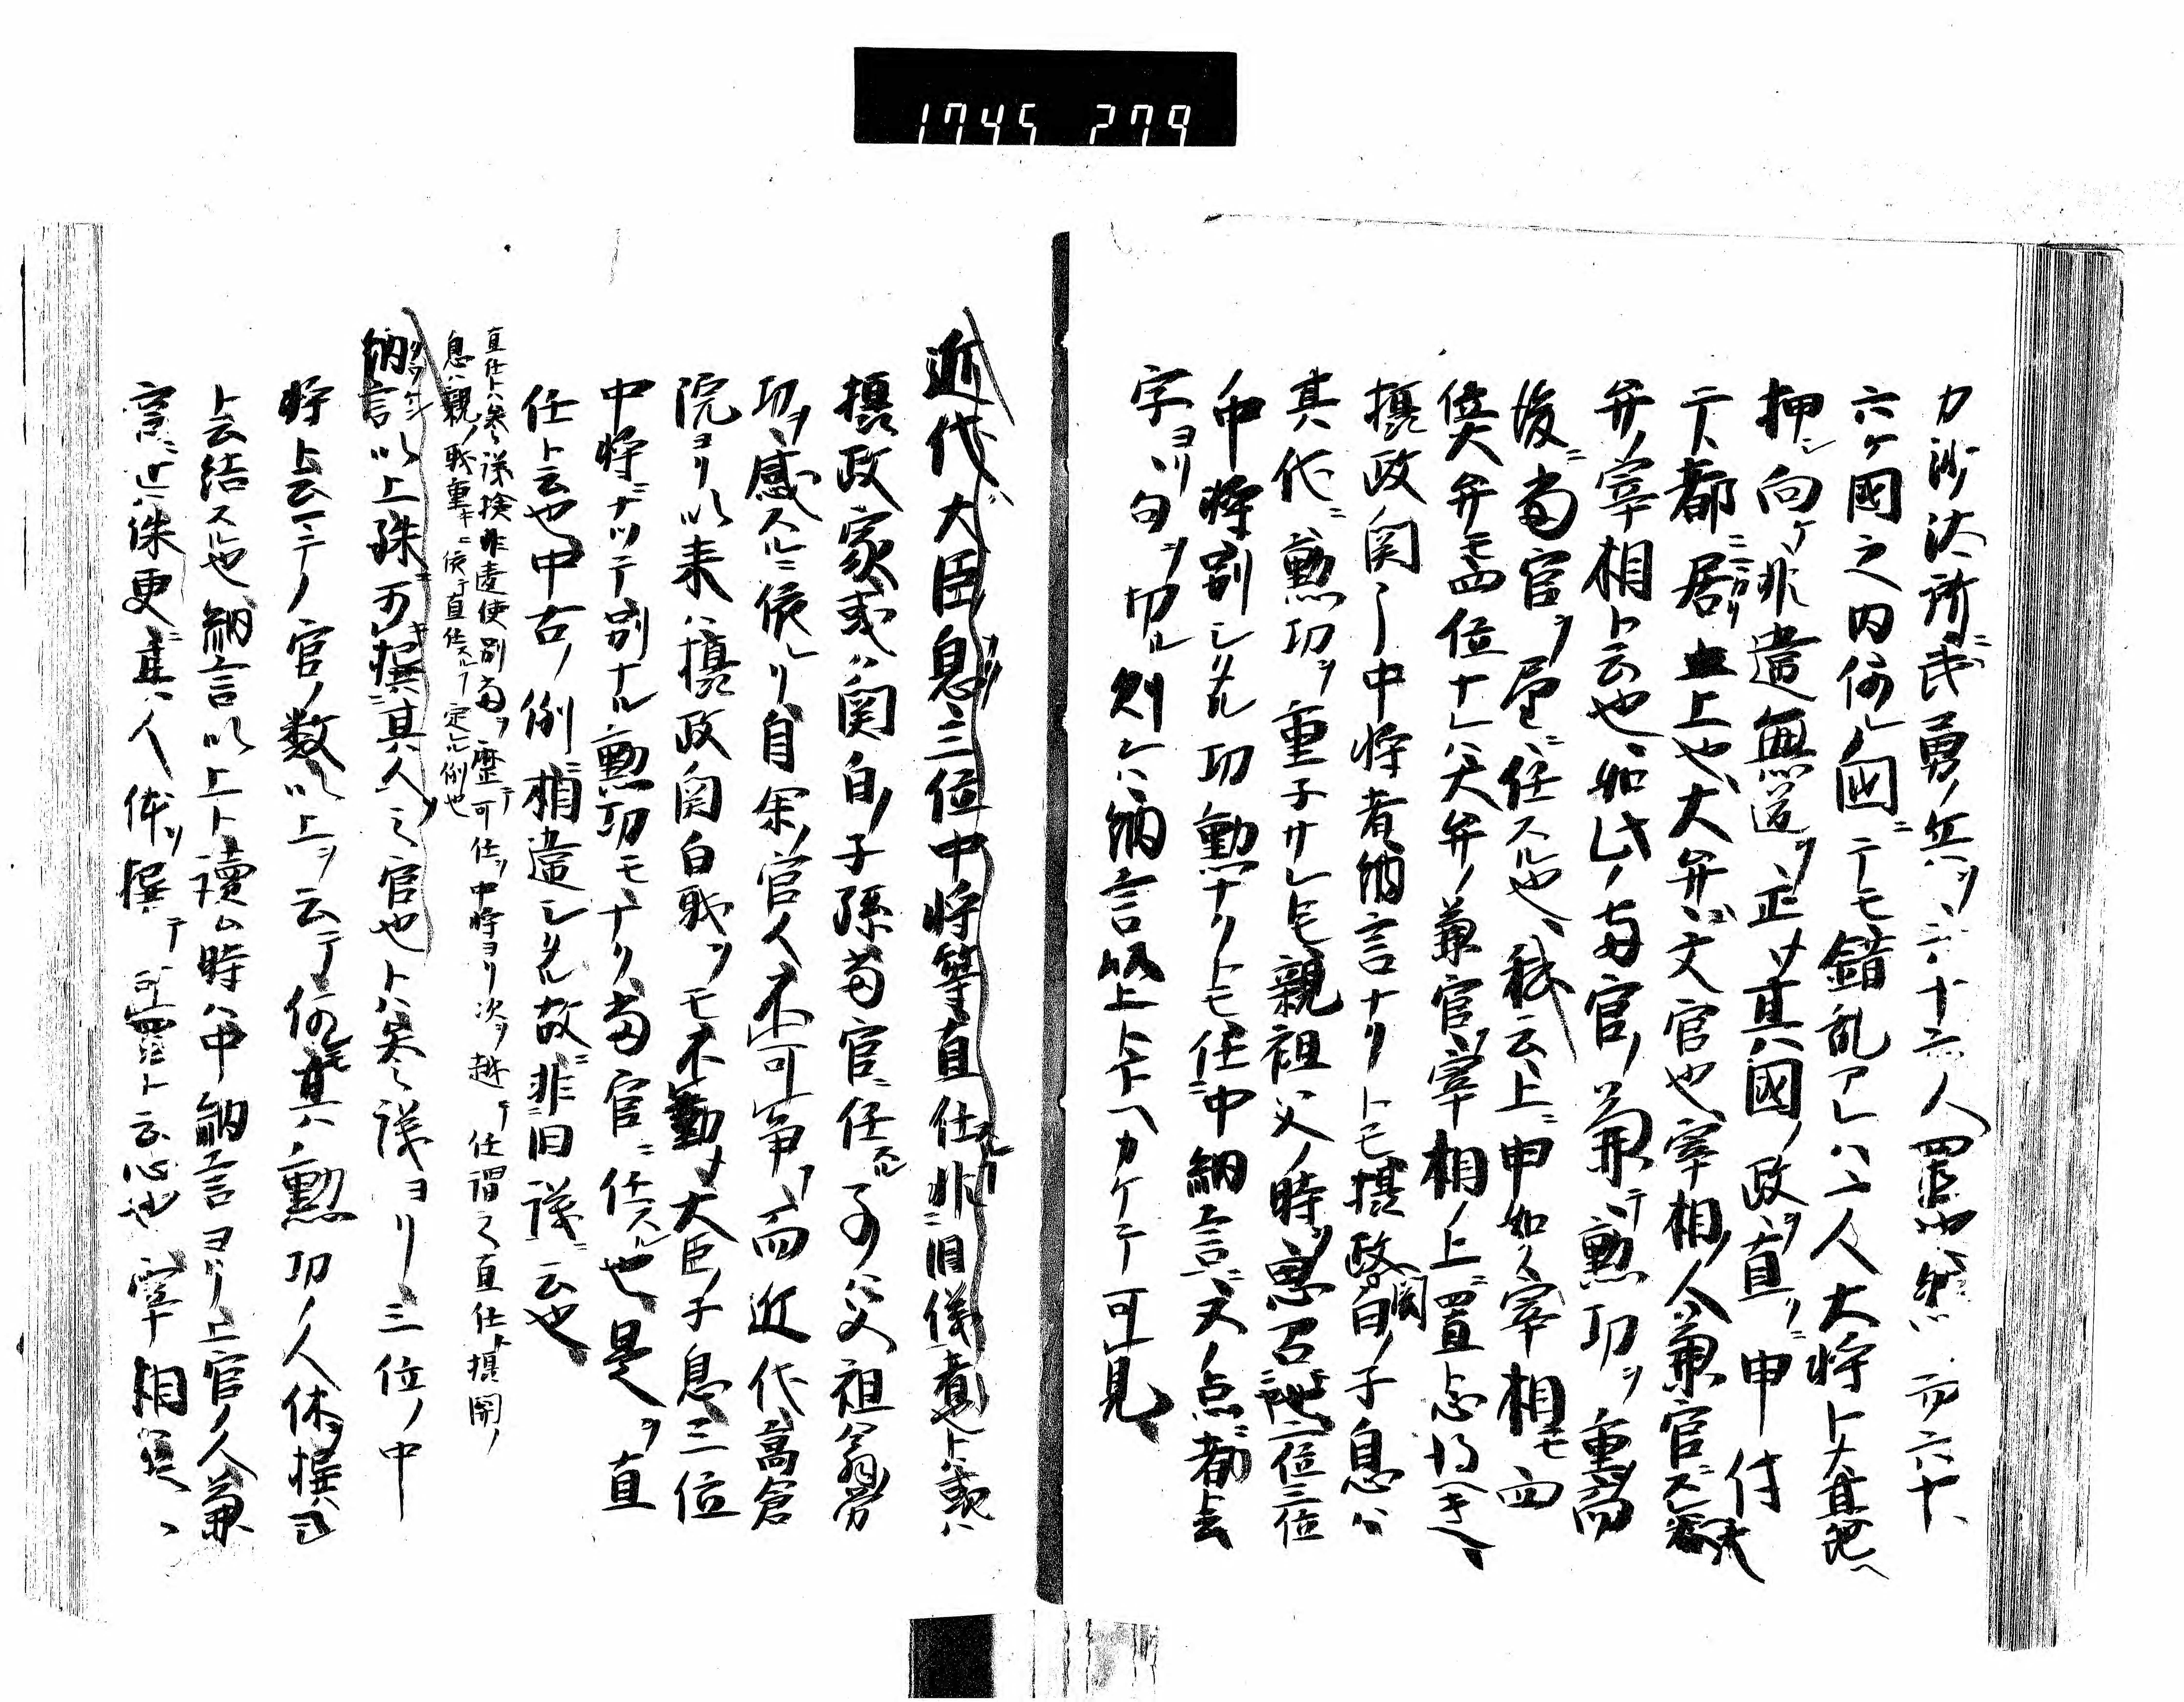 1745 279
カ沙汰所ニ武勇ノ兵ヲ六十六人置也然ニ而六十
六ケ國之内何レノ國ニテモ錯乱アレハ一人大将トナ其地ヘ
押シ向テ非違無道ヲ正サ其ノ國ノ政ヲ直ノ申付
テ都ニ居ルニ上也大弁ハ文官也宰相ノ人兼官ズレ大
弁ノ宰相ト云也如此ノ両官ノ兼テ勲功ヲ重而
後ニ当官ヲ望ニ任スル也秘云上ニ申如ク宰相モ四
位大弁モ四位ナレハ大弁ノ兼官ノ宰相ノ上ニ置ト心得ヘキ
摂政関ノ中将者納言ナリトモ摂政関白ノ子息ハ
其代ニ勲功ヲ重子サレトモ親祖父ノ時ノ恵召二位三位
中将別シタル功勲ナクトモ任ニ中納言ニ又ノ点ニ都云
字ヨリ句ヲ切ル則ンハ納言以上ト下ヘカケテ可見
近代大臣息三位中将等直任非旧儀者也トハ或ハ
摂政家或ハ関白ノ子孫当官ニ任スル子ノ父祖翁労
功ヲ感スルニ依レリ自余ノ官人不可争而近代高倉
院ヨリ以来ハ摂政関白職ヲモ不勤メ大臣ノ子息三位
中将ニナツテ別ナル勲功モナク当官ニ任スル也是ヲ直
任ト云也中古ノ例ニ相違シタル故ニ非旧議ニ云也
直任トハ参議検非違使別当ヲ歴テ可任ヲ中将ヨリ次ヲ越テ任謂之直任ト摂関ノ
息ハ親ノ職重キニ依テ直任スル丁定ル例也
納言以上殊可撰其人之官也トハ参議ヨリ三位ノ中
将ト云一ニテノ官ノ数以上ヲ云テ何モ其ノ勲功ノ人体ヲ撰ヘ
ト云結スル也納言以上ト讀ム時ハ中納言ヨリ上官ノ人兼
言ニ近ハ殊更ニ其ノ人体ヲ撰テ可置ト云心也宰相是ハ